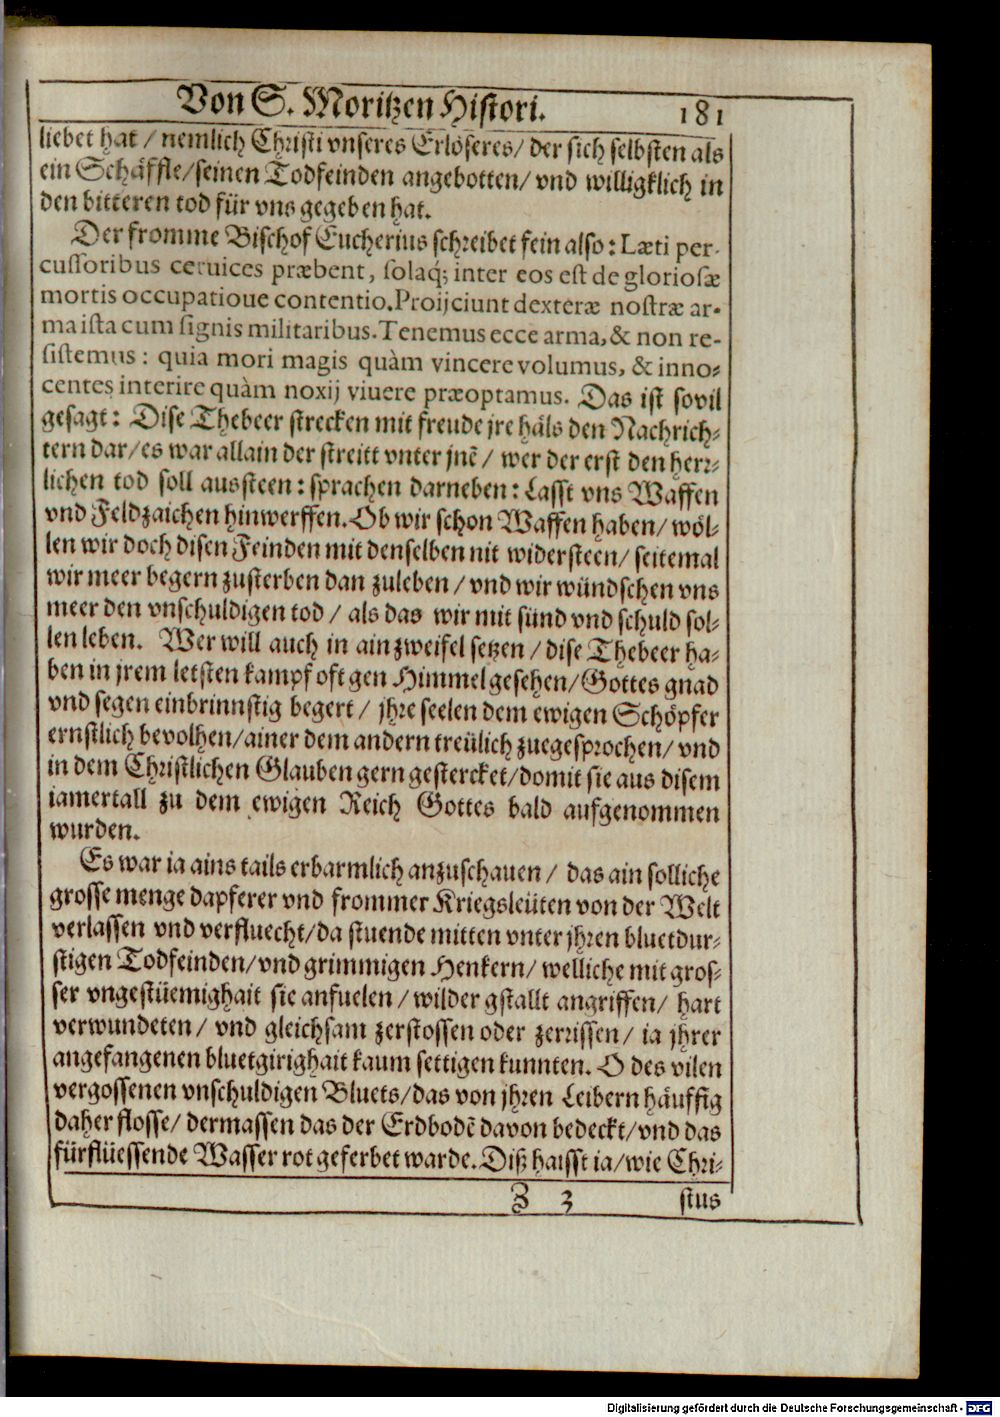 Von S. Moritzen Histori. 181
liebet hat / nemlich Christi vnseres Erlöseres / der sich selbsten als
ein Schäffle / seinen Todfeinden angebotten / vnd willigklich in
den bitteren tod für vns gegeben hat.
Der fromme Bischof Eucherius schreibet fein also: Læti per-
cussoribus ceruices præbent, solaq́; inter eos est de gloriosæ
mortis occupatioue contentio. Proijciunt dexteræ nostræ ar-
ma ista cum signis militaribus. Tenemus ecce arma, & non re-
sistemus: quia mori magis quàm vincere volumus, & inno-
centes interire quàm noxij viuere præoptamus. Das ist sovil
gesagt: Dise Thebeer strecken mit freude jre häls den Nachrich-
tern dar / es war allain der streitt vnter jnē / wer der erst den herr-
lichen tod soll aussteen: sprachen darneben: Lasst vns Waffen
vnd Feldzaichen hinwerffen. Ob wir schon Waffen haben / wöl-
len wir doch disen Feinden mit denselben nit widersteen / seitemal
wir meer begern zusterben dan zuleben / vnd wir wündschen vns
meer den vnschuldigen tod / als das wir mit sünd vnd schuld sol-
len leben. Wer will auch in ain zweifel setzen / dise Thebeer ha-
ben in jrem letsten kampf oft gen Himmel gesehen / Gottes gnad
vnd segen einbrinnstig begert / jhre seelen dem ewigen Schöpfer
ernstlich bevolhen / ainer dem andern treülich zuegesprochen / vnd
in dem Christlichen Glauben gern gestercket / domit sie aus disem
iamertall zu dem ewigen Reich Gottes bald aufgenommen
wurden.
Es war ia ains tails erbarmlich anzuschauen / das ain solliche
grosse menge dapferer vnd frommer Kriegsleüten von der Welt
verlassen vnd verfluecht / da stuende mitten vnter jhren bluetdur-
stigen Todfeinden / vnd grimmigen Henkern / welliche mit gros-
ser vngestüemighait sie anfuelen / wilder gstallt angriffen / hart
verwundeten / vnd gleichsam zerstossen oder zerrissen / ia jhrer
angefangenen bluetgirighait kaum settigen kunnten. O des vilen
vergossenen vnschuldigen Bluets / das von jhren Leibern häuffig
daher flosse / dermassen das der Erdbodē davon bedeckt / vnd das
fürflüessende Wasser rot geferbet warde. Diß haisst ia / wie Chri-
Z 3 stus
Digitalisierung gefördert durch die Deutsche Forschungsgemeinschaft - DFG